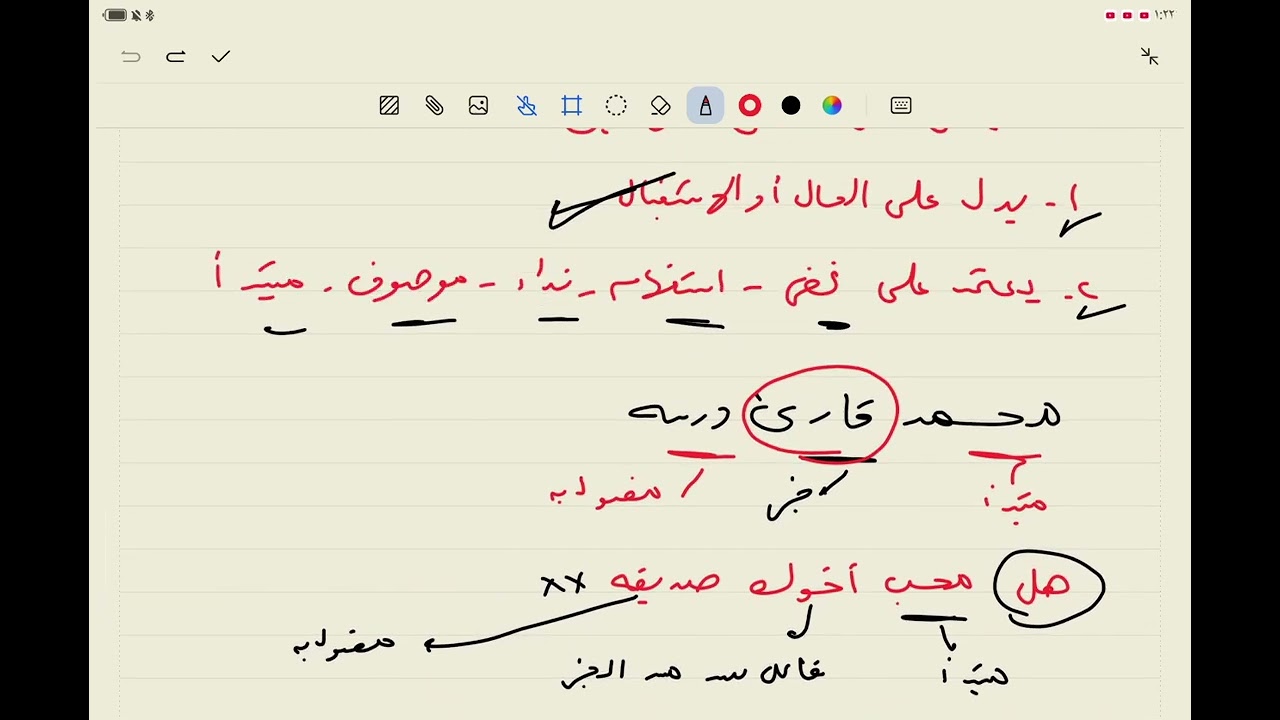 ١:٢٢
١- يدل على الحال أو الاستقبال
٢- يعتمد على نفي - استفهام - نداء - موصوف - مبتدأ
محمد قارئ درسه
مبتدأ خبر مفعول به
هل محب أخوك صديقه ××
مفعول به
مبتدأ فاعل سد مسد الخبر